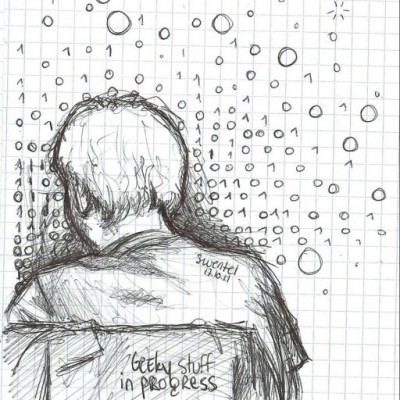 swentel
17.10.11
Geeky stuff
in progress